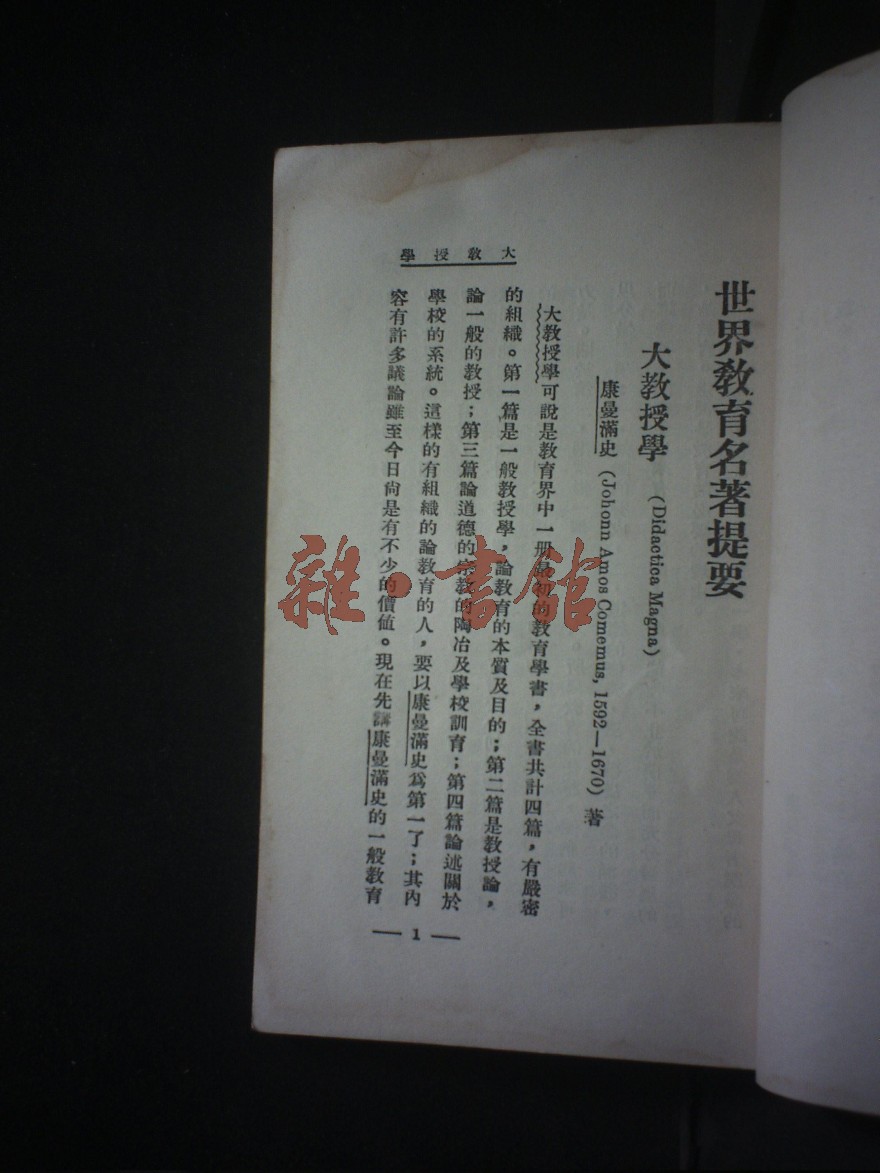 世界教育名著提要
大教授學 (Didactica Magna)
康曼滿史 (Johonn Amos Comemus, 1592—1670) 著
大教授學可說是教育界中一册最初的教育學書，全書共計四篇，有嚴密
的組織。第一篇是一般教授學，論教育的本質及目的；第二篇是教授論，
論一般的教授；第三篇論道德的宗教的陶冶及學校訓育；第四篇論述關於
學校的系統。這樣的有組織的論教育的人，要以康曼滿史爲第一了；其內
容有許多議論雖至今日尙是有不少的價値。現在先講康曼滿史的一般教育
大教授學
— 1 —
雜·書館